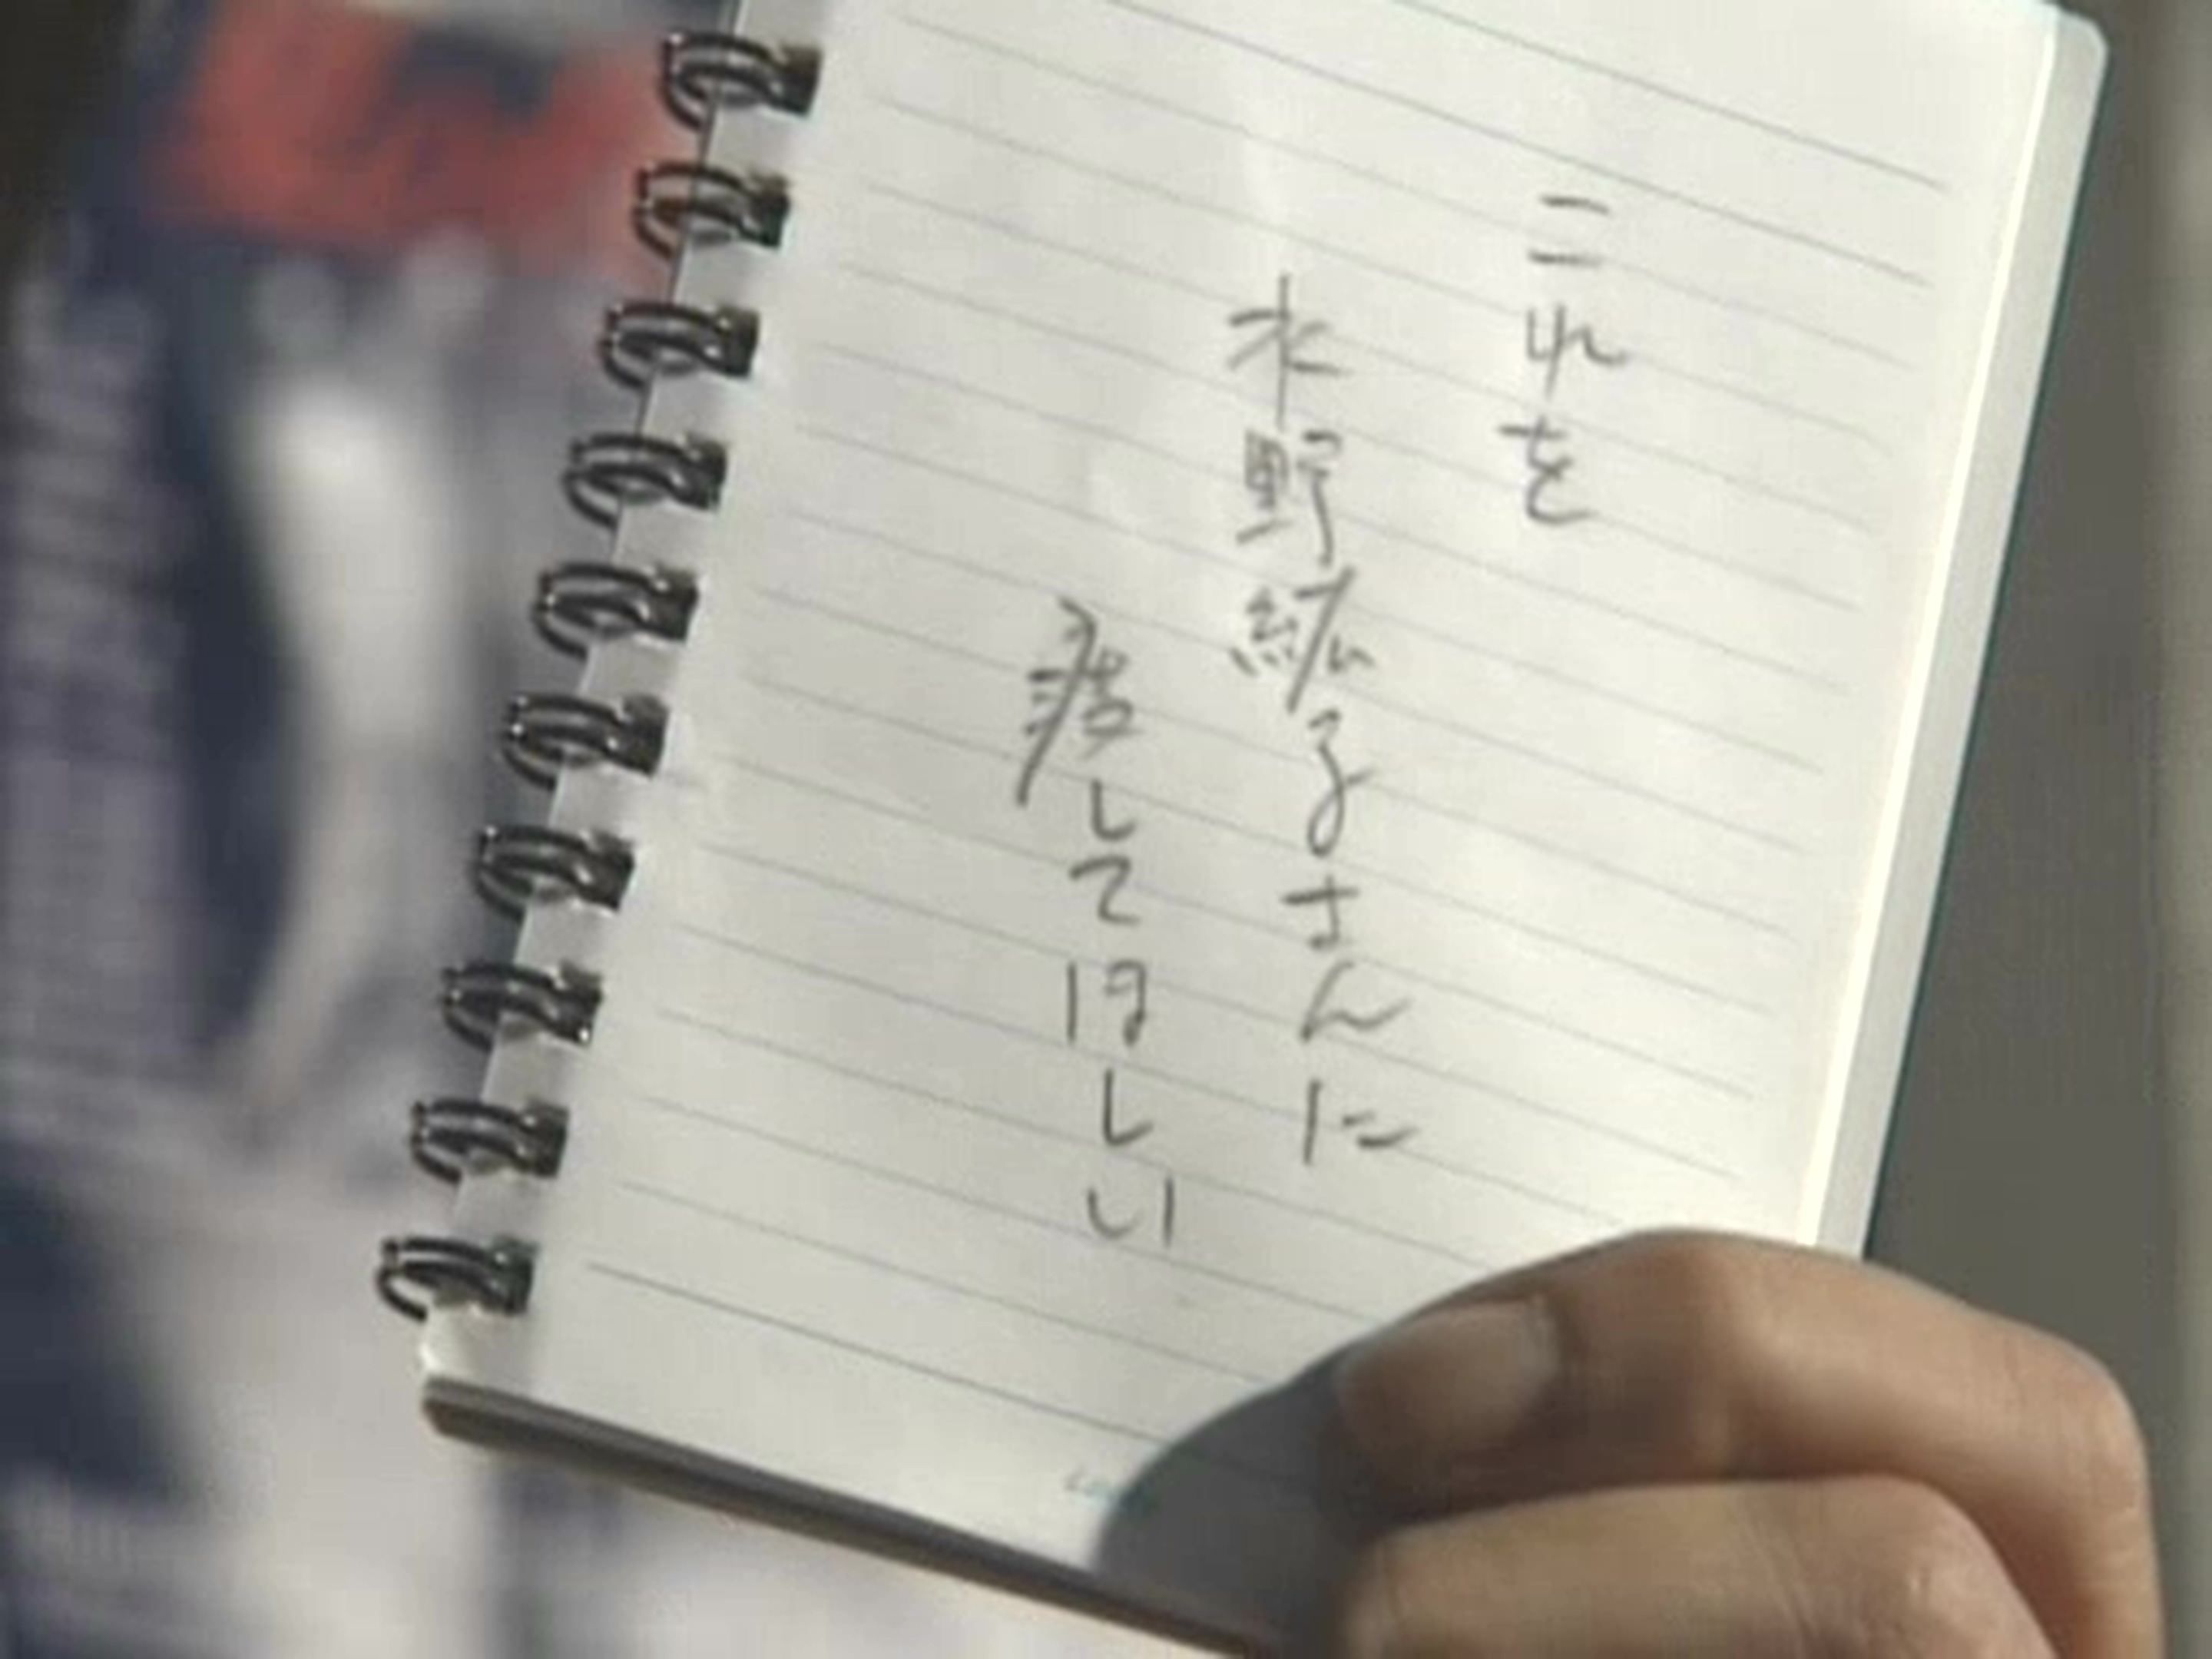 これを
水野紘子さんに
渡してほしい